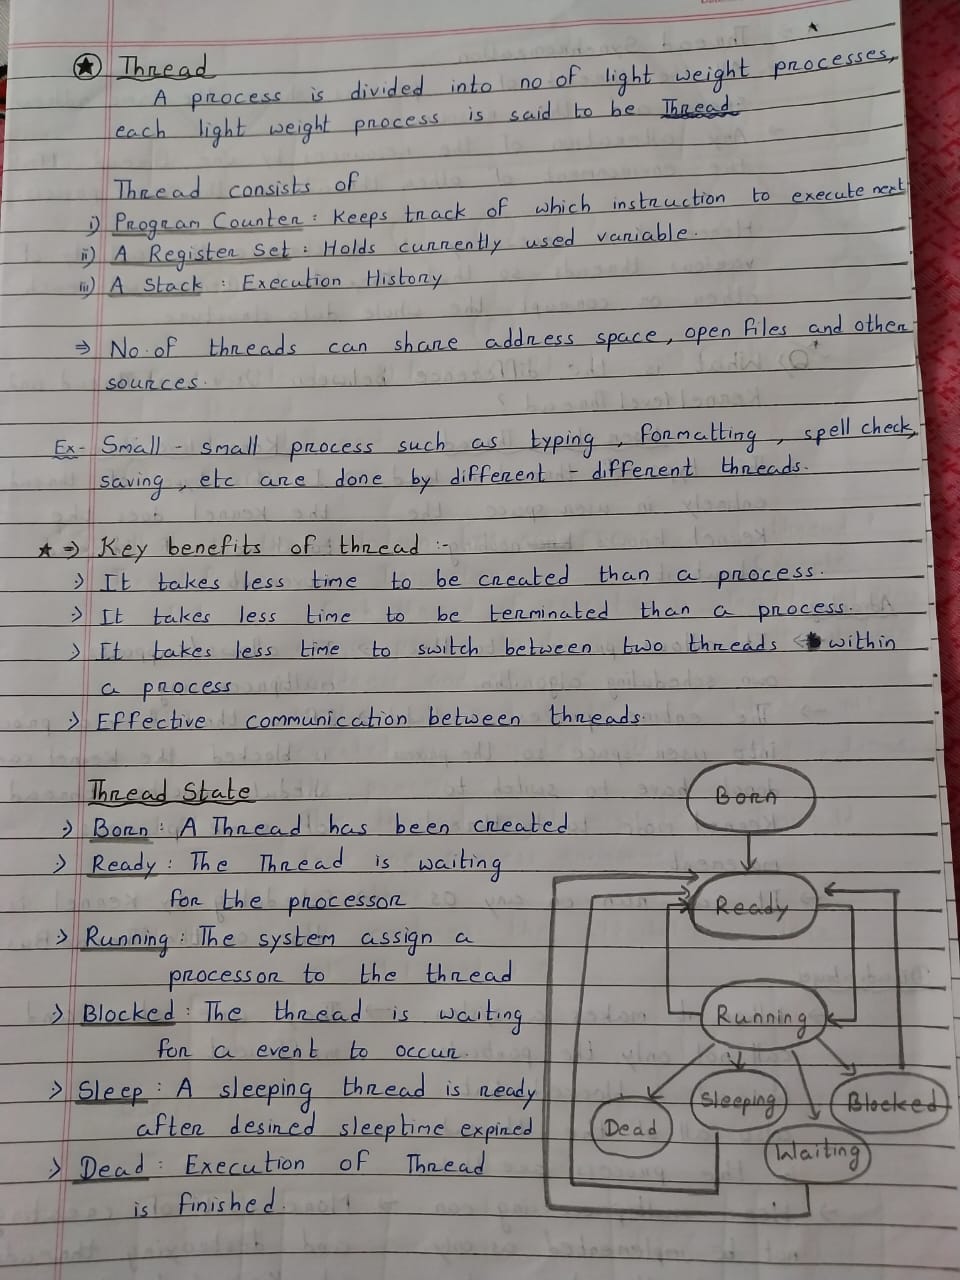 ★ Thread
A process is divided into no of light weight processes,
each light weight process is said to be Thread.
Thread consists of
i) Program Counter : Keeps track of which instruction to execute next
ii) A Register Set : Holds currently used variable.
iii) A Stack : Execution History
⇒ No. of threads can share address space, open files and other
sources.
Ex- Small - small process such as typing, formatting, spell check,
saving, etc are done by different - different threads.
★ ⇒ Key benefits of thread :-
> It takes less time to be created than a process.
> It takes less time to be terminated than a process.
> It takes less time to switch between two threads within
a process
> Effective communication between threads.
Thread State
> Born : A Thread has been created
> Ready : The Thread is waiting
for the processor
> Running : The system assign a
processor to the thread
> Blocked : The thread is waiting
for a event to occur.
> Sleep : A sleeping thread is ready
after desired sleeptime expired
> Dead : Execution of Thread
is finished.
Born
Ready
Running
Dead
Sleeping
Waiting
Blocked